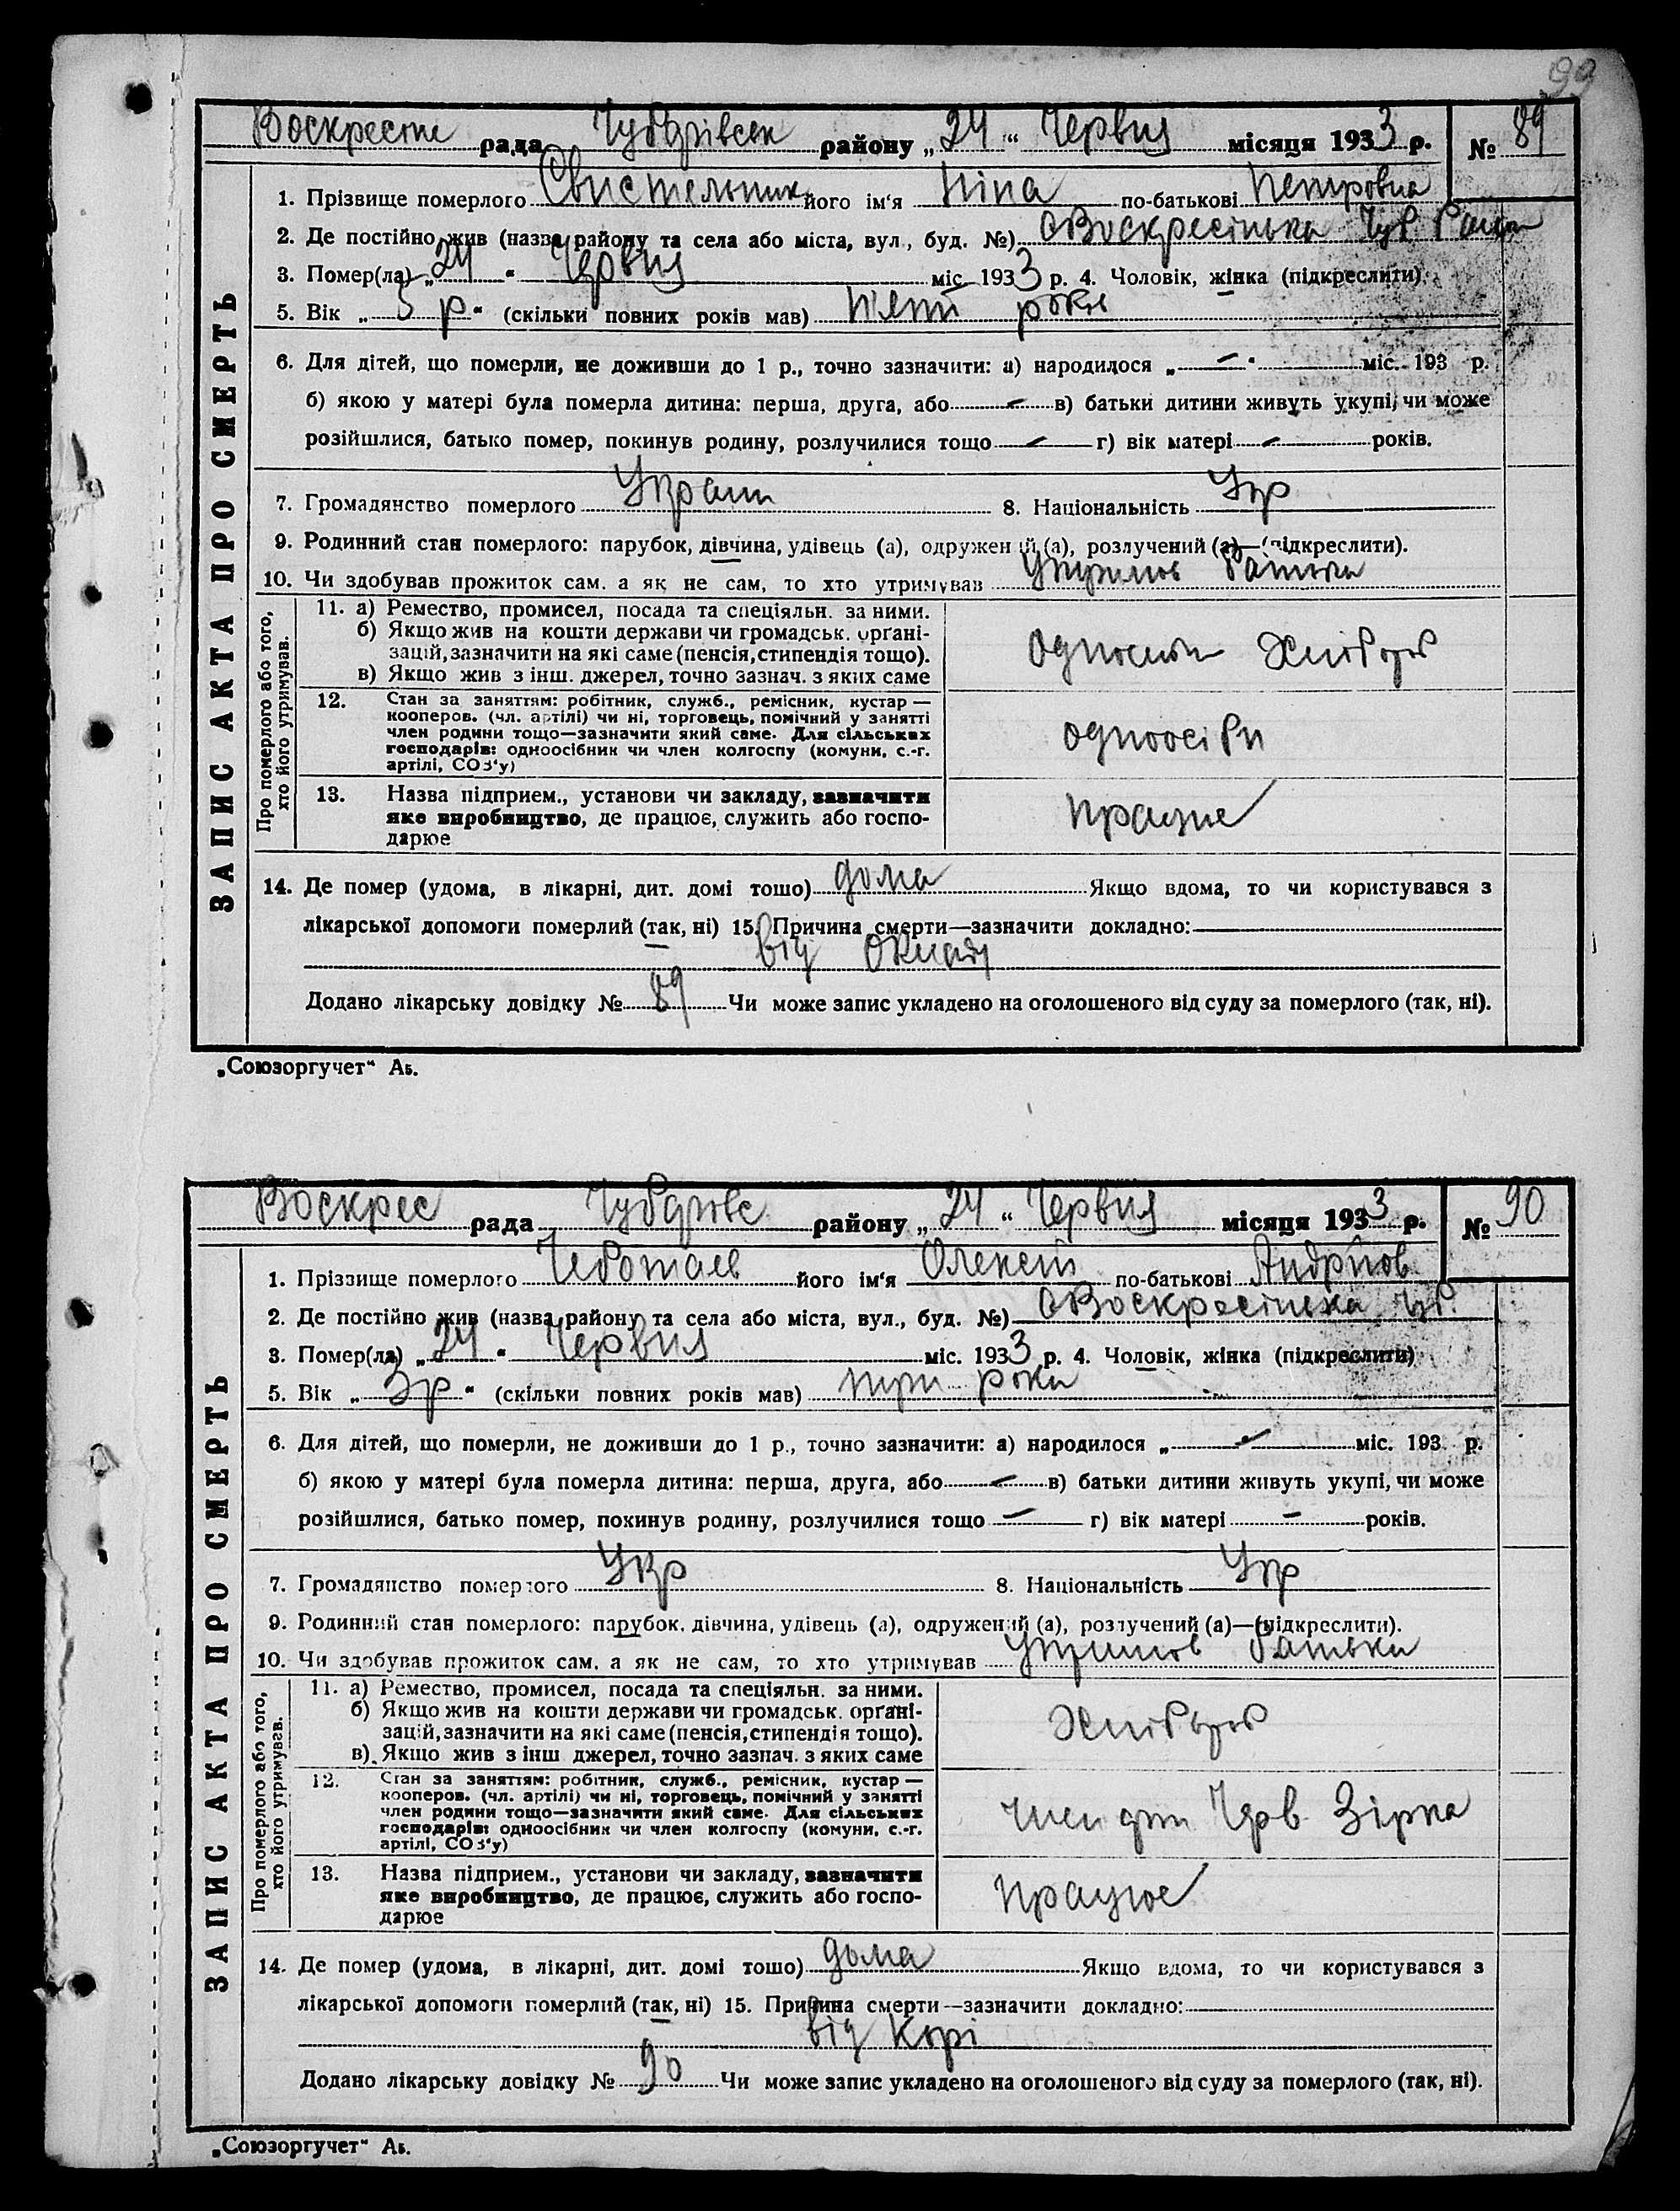 99
Воскресен рада Чубарівськ району „24“ Червня місяця 1933 р. № 89
ЗАПИС АКТА ПРО СМЕРТЬ
1. Прізвище померлого Свистельник його ім'я Ніна по-батькові Петровна
2. Де постійно жив (назва району та села або міста, вул., буд. №) с Воскресінька Чуб. Район
3. Помер(ла) „24“ Червня міс. 1933 р. 4. Чоловік, жінка (підкреслити)
5. Вік „5 р“ (скільки повних років мав) П'ять роки
6. Для дітей, що померли, не доживши до 1 р., точно зазначити: а) народилося „—“ міс. 193 р.
б) якою у матері була померла дитина: перша, друга, або — в) батьки дитини живуть укупі, чи може
розійшлися, батько помер, покинув родину, розлучилися тощо — г) вік матері — років.
7. Громадянство померлого Украин 8. Національність Укр
9. Родинний стан померлого: парубок, дівчина, удівець (а), одружений (а), розлучений (а)—(підкреслити).
10. Чи здобував прожиток сам, а як не сам, то хто утримував Утримов батька
Про померлого або того, хто його утримував.
11. а) Ремество, промисел, посада та спеціяльн. за ними.
б) Якщо жив на кошти держави чи громадськ. орґані-
зацій, зазначити на які саме (пенсія, стипендія тощо).
в) Якщо жив з інш. джерел, точно зазнач. з яких саме
Хлібороб
12. Стан за заняттям: робітник, служб., ремісник, кустар —
кооперов. (чл. артілі) чи ні, торговець, помічний у занятті
член родини тощо—зазначити який саме. Для сільських
господарів: одноосібник чи член колгоспу (комуни, с.-г.
артілі, СОЗ'у)
одноосібн
13. Назва підприєм., установи чи закладу, зазначити
яке виробництво, де працює, служить або госпо-
дарює
працює
14. Де помер (удома, в лікарні, дит. домі тощо) дома Якщо вдома, то чи користувався з
лікарської допомоги померлий (так, ні) 15. Причина смерти—зазначити докладно:
від
Додано лікарську довідку № 89 Чи може запис укладено на оголошеного від суду за померлого (так, ні).
„Союзоргучет“ Аб.
Воскрес рада Чубарівс району „24“ Червня місяця 1933 р. № 90
ЗАПИС АКТА ПРО СМЕРТЬ
1. Прізвище померлого Чеботаєв його ім'я Олексій по-батькові Андрійов
2. Де постійно жив (назва району та села або міста, вул., буд. №) с Воскресінька Чуб.
3. Помер(ла) „24“ Червня міс. 1933 р. 4. Чоловік, жінка (підкреслити)
5. Вік „3р“ (скільки повних років мав) три роки
6. Для дітей, що померли, не доживши до 1 р., точно зазначити: а) народилося „—“ міс. 193 р.
б) якою у матері була померла дитина: перша, друга, або — в) батьки дитини живуть укупі, чи може
розійшлися, батько помер, покинув родину, розлучилися тощо — г) вік матері — років.
7. Громадянство померлого Укр 8. Національність Укр
9. Родинний стан померлого: парубок, дівчина, удівець (а), одружений (а), розлучений (а)—(підкреслити).
10. Чи здобував прожиток сам, а як не сам, то хто утримував Утримов батька
Про померлого або того, хто його утримував.
11. а) Ремество, промисел, посада та спеціяльн. за ними.
б) Якщо жив на кошти держави чи громадськ. орґані-
зацій, зазначити на які саме (пенсія, стипендія тощо).
в) Якщо жив з інш джерел, точно зазнач. з яких саме
Хлібороб
12. Стан за заняттям: робітник, служб., ремісник, кустар —
кооперов. (чл. артілі) чи ні, торговець, помічний у занятті
член родини тощо—зазначити який саме. Для сільських
господарів: одноосібник чи член колгоспу (комуни, с.-г.
артілі, СОЗ'у)
член арт Чрв. Зірка
13. Назва підприєм., установи чи закладу, зазначити
яке виробництво, де працює, служить або госпо-
дарює
працює
14. Де помер (удома, в лікарні, дит. домі тощо) дома Якщо вдома, то чи користувався з
лікарської допомоги померлий (так, ні) 15. Причина смерти—зазначити докладно:
від Корі
Додано лікарську довідку № 90 Чи може запис укладено на оголошеного від суду за померлого (так, ні).
„Союзоргучет“ Аб.